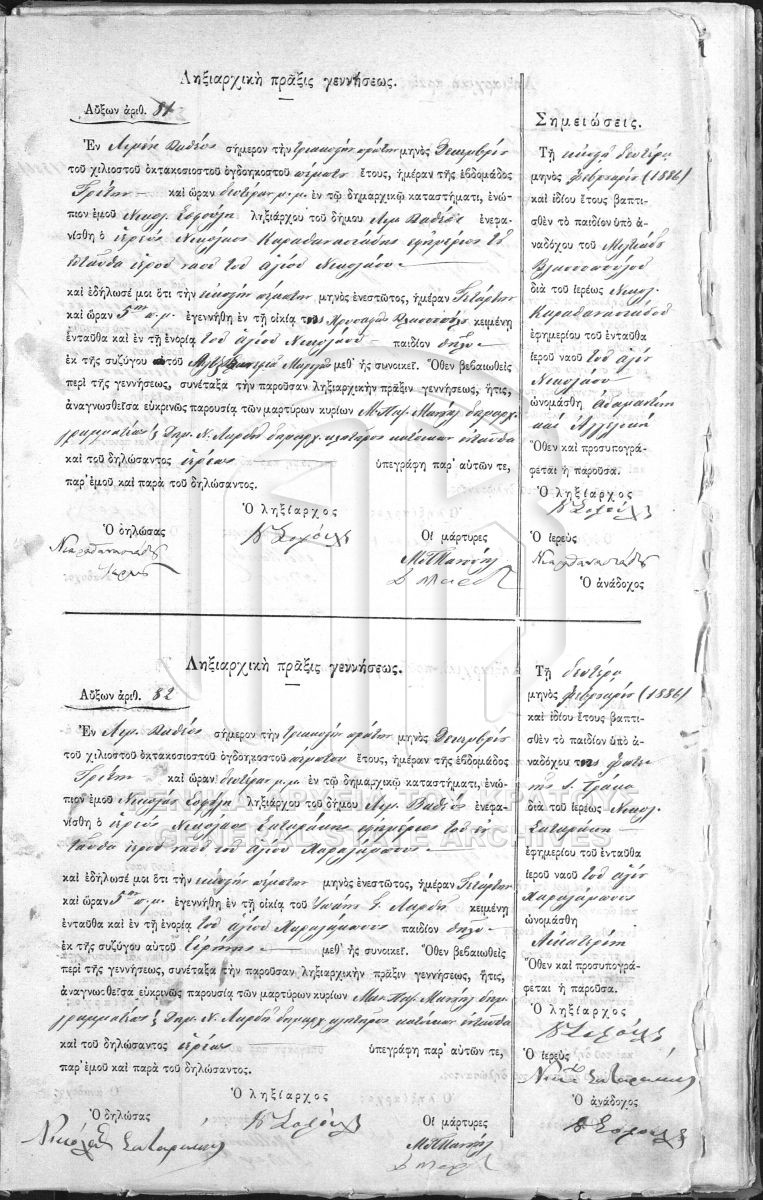 Ληξιαρχικὴ πρᾶξις γεννήσεως.
Αὔξων ἀριθ. 81
Ἐν Λιμένι Βαθέος σήμερον τὴν τριακοστὴν πρώτην μηνὸς Δεκεμβρίου
τοῦ χιλιοστοῦ ὀκτακοσιοστοῦ ὀγδοηκοστοῦ πέμπτου ἔτους, ἡμέραν τῆς ἑβδομάδος
Τρίτην καὶ ὥραν δευτέραν μ.μ. ἐν τῷ δημαρχικῷ καταστήματι, ἐνώ-
πιον ἐμοῦ Νικολ. ληξιάρχου τοῦ δήμου Λιμ. Βαθέος ἐνεφα-
νίσθη ὁ ἱερεὺς Νικόλαος Καραθανασιάδης ἐφημέριος τοῦ
ἐνταῦθα ἱεροῦ ναοῦ τοῦ ἁγίου Νικολάου
καὶ ἐδήλωσέ μοι ὅτι τὴν εἰκοστὴν πέμπτην μηνὸς ἐνεστῶτος, ἡμέραν Τετάρτην
καὶ ὥραν 5ην π.μ. ἐγεννήθη ἐν τῇ οἰκίᾳ κειμένῃ
ἐνταῦθα καὶ ἐν τῇ ἐνορίᾳ τοῦ ἁγίου Νικολάου παιδίον θῆλυ
ἐκ τῆς συζύγου τοῦ μεθ᾽ ἧς συνοικεῖ. Ὅθεν βεβαιωθεὶς
περὶ τῆς γεννήσεως, συνέταξα τὴν παροῦσαν ληξιαρχικὴν πρᾶξιν γεννήσεως, ἥτις,
ἀναγνωσθεῖσα εὐκρινῶς παρουσίᾳ τῶν μαρτύρων κυρίων
γραμματέως καὶ Δημ. Ν. Λαρδῆ δημαρχ. κλητῆρος κατοίκων ἐνταῦθα
καὶ τοῦ δηλώσαντος ἱερέως ὑπεγράφη παρ᾽ αὐτῶν τε,
παρ᾽ ἐμοῦ καὶ παρὰ τοῦ δηλώσαντος.
Ὁ ληξίαρχος
Ὁ δηλώσας
Οἱ μάρτυρες
Σημειώσεις.
Τῇ εἰκοστῇ δευτέρᾳ
μηνὸς Φεβρουαρίου (1886)
καὶ ἰδίου ἔτους βαπτι-
σθὲν τὸ παιδίον ὑπὸ ἀ-
ναδόχου τοῦ Μιλτιάδου
διὰ τοῦ ἱερέως Νικολ.
Καραθανασιάδου
ἐφημερίου τοῦ ἐνταῦθα
ἱεροῦ ναοῦ τοῦ ἁγίου
Νικολάου
ὠνομάσθη Ἀδαμαντίνη
καὶ Ἀγγελικὴ
Ὅθεν καὶ προσυπογρά-
φεται ἡ παροῦσα.
Ὁ ληξίαρχος
Ὁ ἱερεὺς
Ὁ ἀνάδοχος
Ληξιαρχικὴ πρᾶξις γεννήσεως.
Αὔξων ἀριθ. 82
Ἐν Λιμ. Βαθέος σήμερον τὴν τριακοστὴν πρώτην μηνὸς Δεκεμβρίου
τοῦ χιλιοστοῦ ὀκτακοσιοστοῦ ὀγδοηκοστοῦ πέμπτου ἔτους, ἡμέραν τῆς ἑβδομάδος
Τρίτην καὶ ὥραν δευτέραν μ.μ. ἐν τῷ δημαρχικῷ καταστήματι, ἐνώ-
πιον ἐμοῦ Νικολάου ληξιάρχου τοῦ δήμου Λιμ. Βαθέος ἐνεφα-
νίσθη ὁ ἱερεὺς Νικόλαος Σαταράκης ἐφημέριος τοῦ ἐν
ταῦθα ἱεροῦ ναοῦ τοῦ ἁγίου Χαραλάμπους
καὶ ἐδήλωσέ μοι ὅτι τὴν εἰκοστὴν πέμπτην μηνὸς ἐνεστῶτος, ἡμέραν Τετάρτην
καὶ ὥραν 5ην π.μ. ἐγεννήθη ἐν τῇ οἰκίᾳ τοῦ Λαρδῆ κειμένῃ
ἐνταῦθα καὶ ἐν τῇ ἐνορίᾳ τοῦ ἁγίου Χαραλάμπους παιδίον θῆλυ
ἐκ τῆς συζύγου αὐτοῦ Εἰρήνης μεθ᾽ ἧς συνοικεῖ. Ὅθεν βεβαιωθεὶς
περὶ τῆς γεννήσεως, συνέταξα τὴν παροῦσαν ληξιαρχικὴν πρᾶξιν γεννήσεως, ἥτις,
ἀναγνωσθεῖσα εὐκρινῶς παρουσίᾳ τῶν μαρτύρων κυρίων
γραμματέως καὶ Δημ. Ν. Λαρδῆ δημαρχ. κλητῆρος κατοίκων ἐνταῦθα
καὶ τοῦ δηλώσαντος ἱερέως ὑπεγράφη παρ᾽ αὐτῶν τε,
παρ᾽ ἐμοῦ καὶ παρὰ τοῦ δηλώσαντος.
Ὁ ληξίαρχος
Ὁ δηλώσας
Οἱ μάρτυρες
Νικόλαος Σαταράκης
Τῇ δευτέρᾳ
μηνὸς Φεβρουαρίου (1886)
καὶ ἰδίου ἔτους βαπτι-
σθὲν τὸ παιδίον ὑπὸ ἀ-
ναδόχου
διὰ τοῦ ἱερέως Νικολ.
Σαταράκη
ἐφημερίου τοῦ ἐνταῦθα
ἱεροῦ ναοῦ τοῦ ἁγίου
Χαραλάμπους
ὠνομάσθη
Αἰκατερίνη
Ὅθεν καὶ προσυπογρά-
φεται ἡ παροῦσα.
Ὁ ληξίαρχος
Ὁ ἱερεὺς
Ὁ ἀνάδοχος
ΓΕΝΙΚΑ ΑΡΧΕΙΑ ΤΟΥ ΚΡΑΤΟΥΣ
GENERAL STATE ARCHIVES